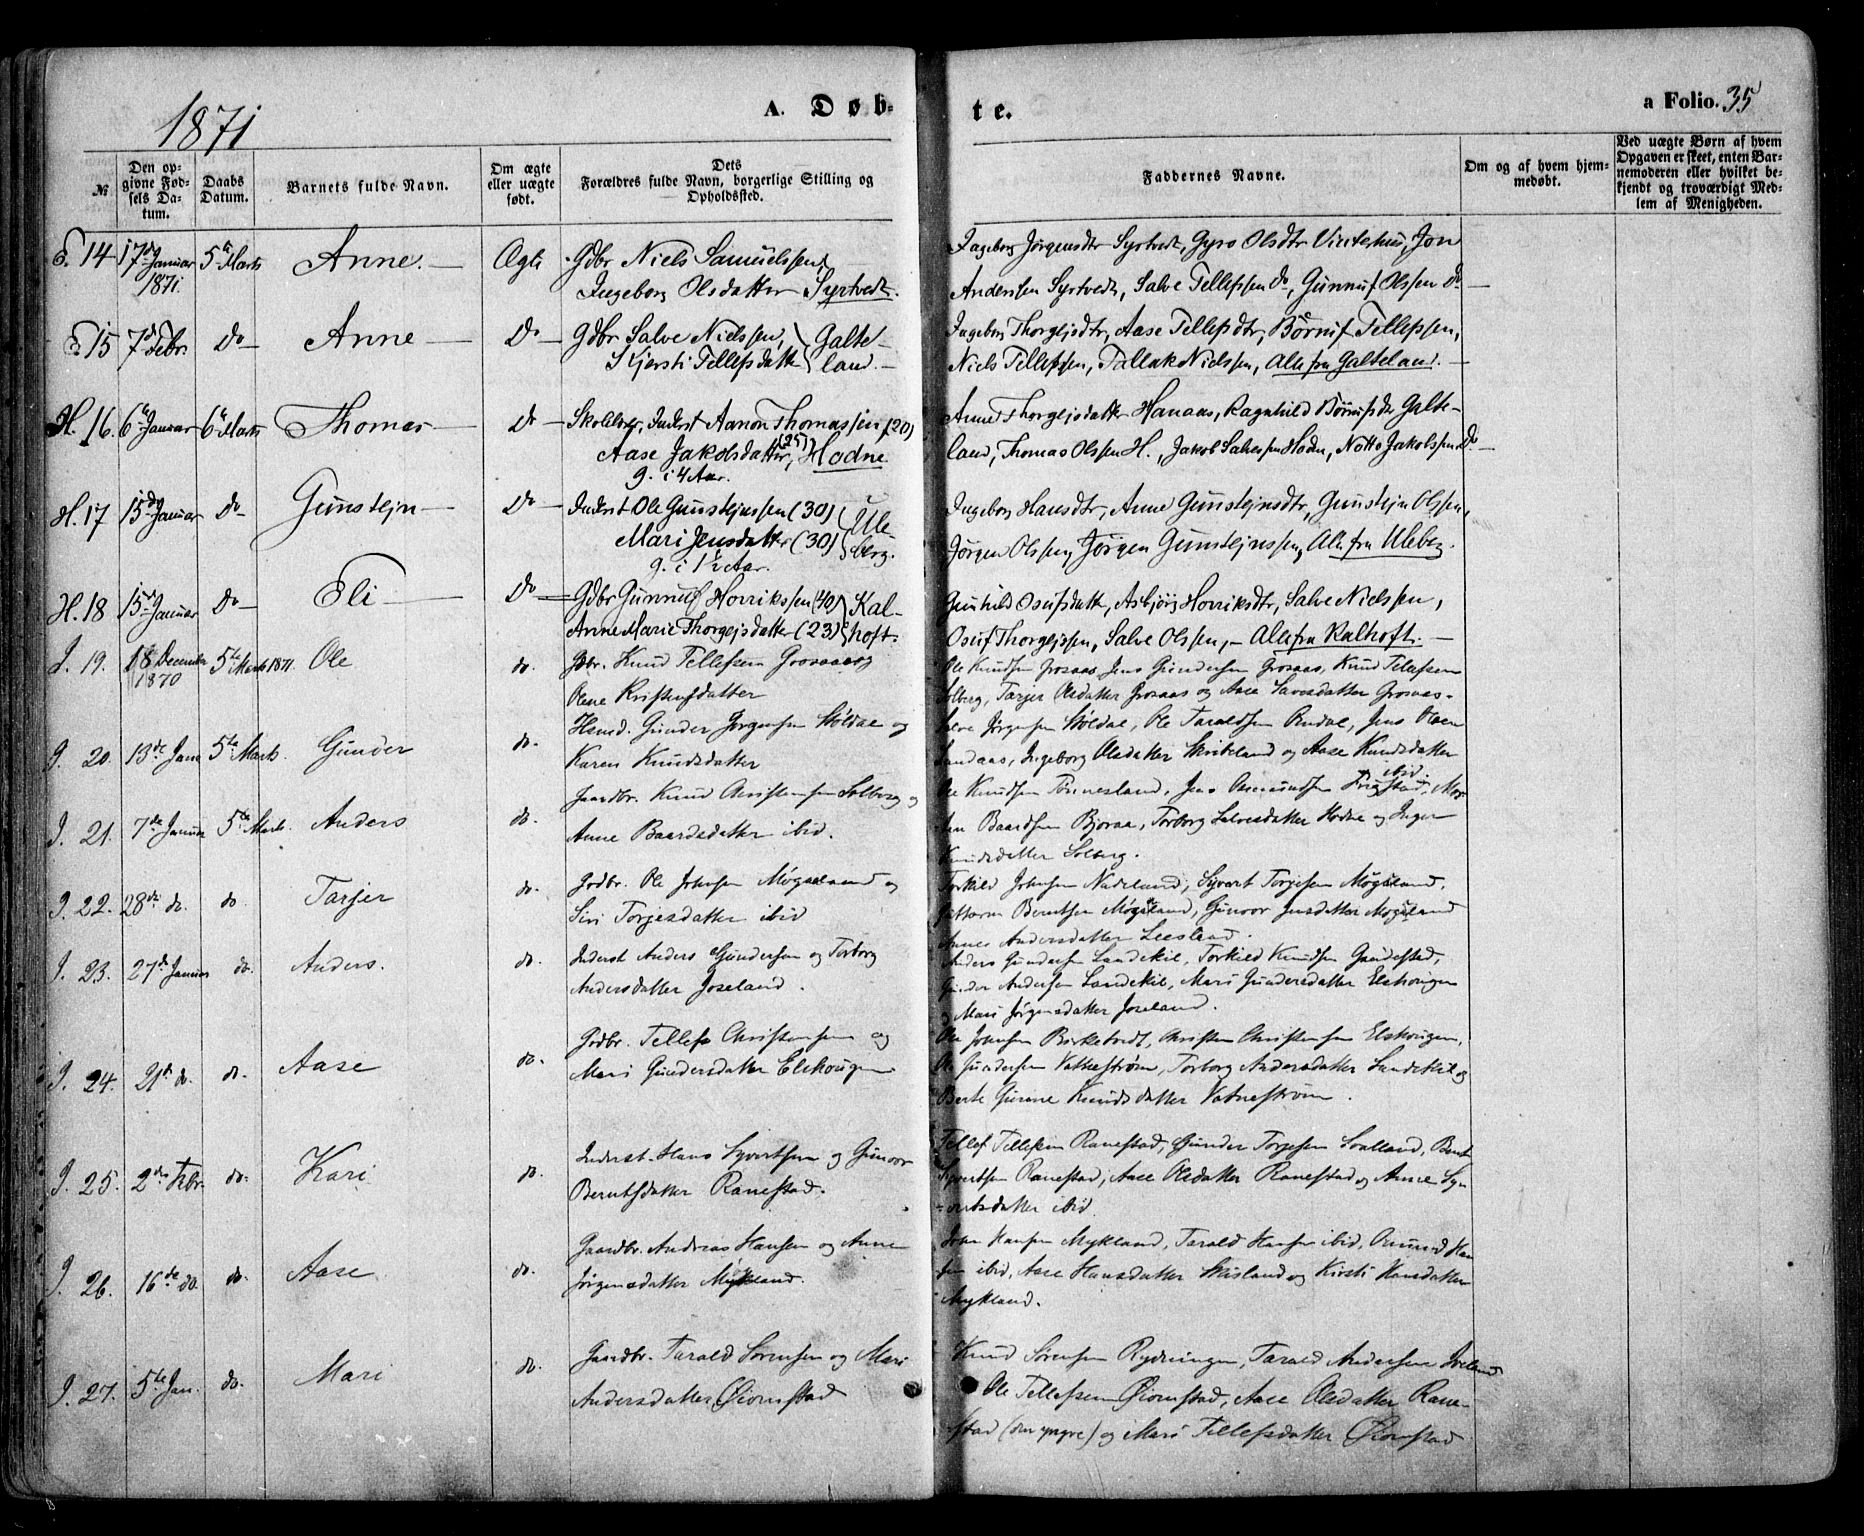 1871
A. Døb-
te.
a Folio. 35
№
Den op-
givne Fød-
sels Da-
tum.
Daabs
Datum.
Barnets fulde Navn.
Om ægte
eller uægte
født.
Dets
Forældres fulde Navn, borgerlige Stilling og
Opholdssted.
Faddernes Navne.
Om og af hvem hjem-
medøbt.
Ved uægte Børn af hvem
Opgaven er skeet, enten Bar-
nemoderen eller hvilket be-
kjendt og troværdigt Med-
lem af Menigheden.
E. 14 17de Januar 1871. 5te Marts Anne. Ægte Gdbr Niels Samuelssen,
Ingeborg Olsdatter Syrtvedt.
Ingeborg Jørgensdtr Syrtvedt, Gyro Olsdtr Vintehus, Jon
Anderssen Syrtvedt, Salve Tellefssen Do, Gunnuf Olssen Do
E. 15 7de Febr. Do Anne Do Gdbr Salve Nielssen, Galte-
Kjersti Tellefsdatter land.
Ingeborg Thorgjejsdtr, Aase Tellefsdtr, Børnuf Tellefssen,
Niels Tellefssen, Tallak Nielssen, Alle fra Galteland.
H. 16. 6te Januar 6te Marts Thomas Do Skolelærer, Inderst Aanon Thomassen (20)
Aase Jakobsdatter (25), Hodne
g. i 4 Aar.
Anne Thorgejsdatter Hanaas, Ragnhild Børnufsdtr Galte-
land, Thomas Olssen H., Jakob Salvessen Hodne, Notto Jakobssen Do.
H. 17 15de Januar Do Gunstejn Do Inderst Ole Gunstejnssen (30) Ule-
Mari Jensdatter (30) berg.
g. i 1½ Aar.
Ingeborg Hansdtr, Anne Gunstejnsdtr, Gunstejn Olssen,
Jørgen Olssen, Jørgen Gunstejnssen, Alle fra Uleberg.
H. 18 15de Januar Do Eli Do Gdbr Gunnuf Horrikssen (40) Kal-
Anne Marie Thorgejsdatter (23) hoft.
Gunhild Osufsdatter, Asbjørg Horriksdtr, Salve Nielssen,
Osuf Thorgejssen, Salve Olssen, Alle fra Kalhoft.
J. 19. 18 December 1870 5te Marts 1871. Ole do. Gdbr. Knud Tellefsen Grosaas og
Olene Kristofsdatter
Ole Knudsen Grosaas, Jens Gundersen Grosaas, Knud Tellefsen
Solberg, Tarjer Olsdatter Grosaas og Aase Salvesdatter Grosaas.
J. 20. 13de Janu 5te Marts. Gunder do. Husmd. Gunder Jørgensen Støldal og
Karen Knudsdatter
Salve Jørgensen Støldal, Ole Taraldsen Omdal, Jens Olsen
Sandaas, Ingeborg Olsdatter Skribeland og Aase Knudsdatter
ibid.
J. 21. 7de Januar 5te Marts. Anders do. Gaardbr. Knud Christensen Solberg og
Anne Baardsdatter ibid.
Ole Knudsen Tønnesland, Jens Osmundsen Frigstad, Mor-
ten Baardsen Bjoraa, Torborg Salvesdatter Hodne og Inger
Knudsdatter Solberg.
J. 22. 28de do. do Tarjer do. Grdbr. Ole Johnsen Møgseland og
Siri Torgesdatter ibid
Torkild Johnsen Nadeland, Syvert Torgesen Møgseland,
Guttorm Berntsen Møgseland, Gunvor Jensdatter Møgseland
Annes Andersdatter Leesland.
J. 23. 27de Januar do. Anders. do. Inderst Anders Gundersen og Torborg
Andersdatter Joseland.
Anders Gundersen Landekil, Torkild Knudsen Gaudestad,
Gunder Andersen Landekil, Mari Gundersdatter Elskougen
og Mari Jørgensdatter Joseland.
J. 24. 21de do. do. Aase do. Grdbr. Tellef Christensen og
Mari Gundersdatter Elskougen
Ole Johnsen Birketvedt, Christen Christensen Elskougen,
Ole Gundersen Vatnestrøm, Torborg Andersdatter Landekil og
Berte Gurine Knudsdatter Vatnestrøm.
J. 25. 2den Febr. do. Kari do. Inderst. Hans Syvertsen og Gunvor
Berntsdatter Ranestad.
Tellef Tellefsen Ranestad, Gunder Torgesen Svalland, Bernt
Syvertsen Ranestad, Aase Olsdatter Ranestad og Anne Sy-
vertsdatter ibid.
J. 26. 16de do. do Aase do. Gaardbr. Andreas Hansen og Anne
Jørgensdatter Mykland.
Hansen Mykland, Tarald Hansen ibid, Osmund Han-
sen ibid, Aase Hansdatter Skisland og Kirsti Hansdatter
Mykland.
J. 27. 5te Jan. do. Mari do. Gaardbr. Tarald Sørensen og Mari
Andersdatter Øiornstad
Knud Sørensen Rydningen, Tarald Andersen Iveland
Ole Tellefsen Øiornstad, Aase Olsdatter Rane-
stad (den yngre) og Mari Tellefsdatter Øiornstad